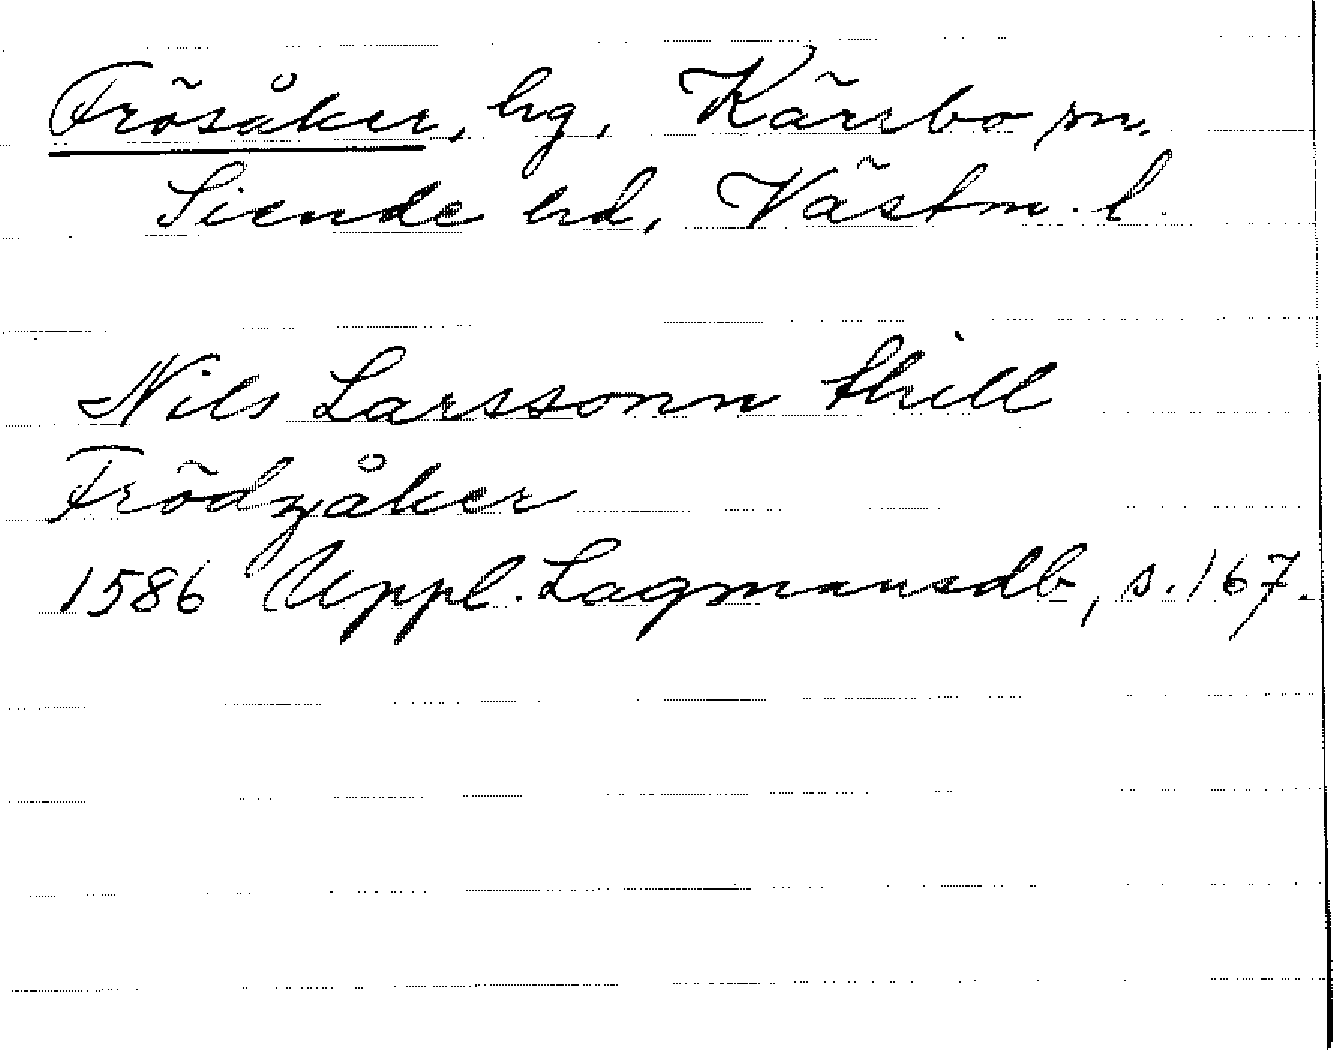 Frösåker, hg, Kärrbo sn.
Siende hd, Västm. l.
Nils Larssonn thill
Frödzåker
1586 Uppl. Lagmansdb, s. 167.